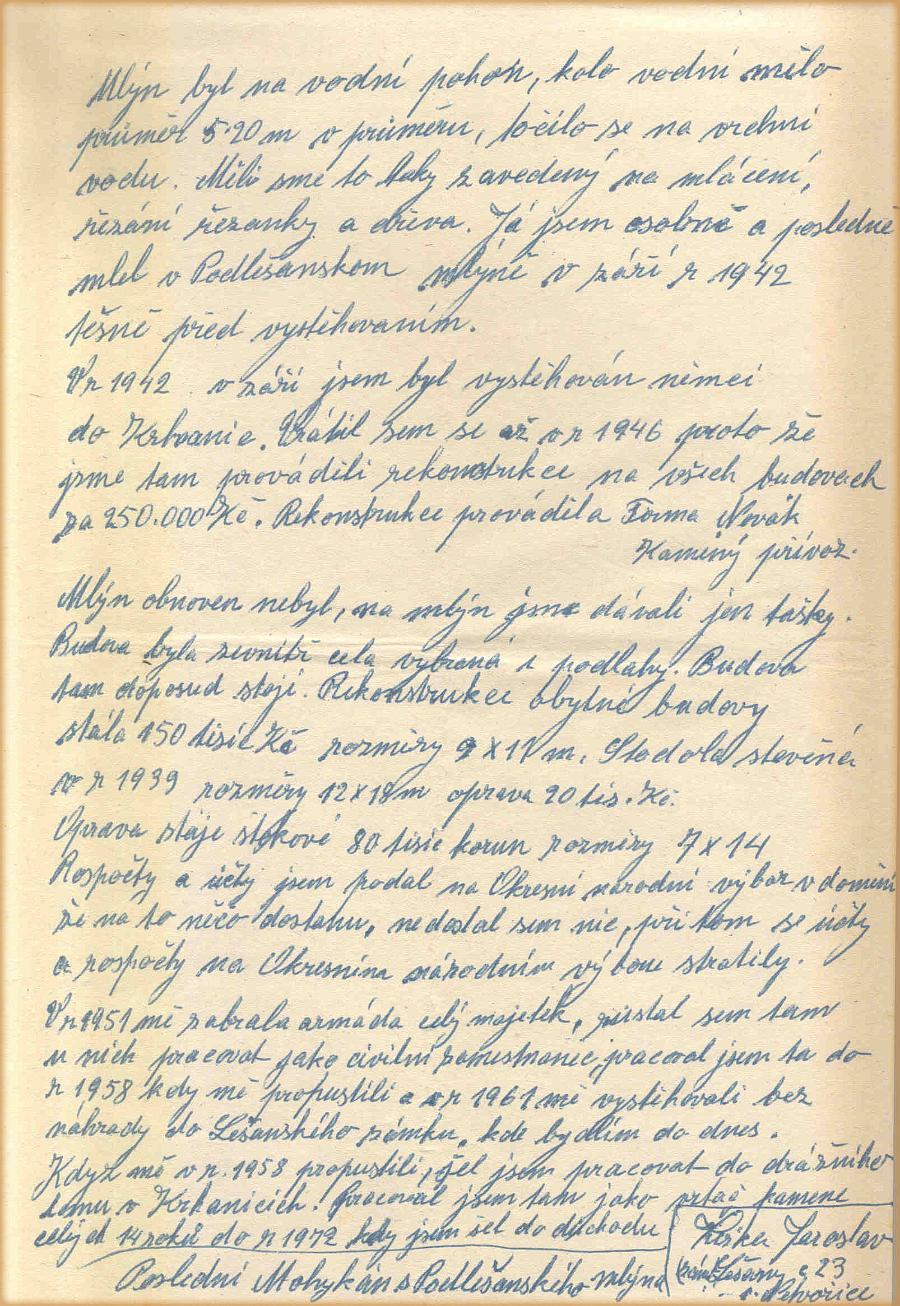 Mlýn byl na vodní pohon, kolo vodní mělo
průměr 5·20 m v průměru, točilo se na vrchní
vodu. Měli sme to taky zavedený na mlácení,
řezání řezanky a dřeva. Já jsem osobně a posledně
mlel v Podlešanskom mlýně v září r 1942
těsně před vystěhovaním.
V r 1942 v září jsem byl vystěhován němci
do Krhanic. Vrátil sem se až v r 1946 proto že
jsme tam prováděli rekonstrukce na všech budovach
za 250.000 Kč. Rekonstrukce prováděla Firma Novák
Kamený přívoz.
Mlýn obnoven nebyl, na mlýn jsme dávali jen tašky.
Budova byla zevnitř cela vybraná i podlahy. Budova
tam doposud stojí. Rekonstrukce obytné budovy
stála 150 tisíc Kč rozměry 9 x 11 m. Stodola stavěná
v r 1939 rozměry 12 x 18 m oprava 20 tis. Kč.
Oprava stáje 80 tisíc korun rozměry 7 x 14
Rospočty a účty jsem podal na Okresní národní výbor v domění
že na to něco dostanu, nedostal sem nic, při tom se účty
a rospočty na Okresním národním výboru stratily.
V r 1951 mě zabrala armáda celý majetek, zůstal sem tam
u nich pracovat jako civilní zamestnanec, pracoval jsem ta do
r 1958 kdy mě propustili a v r 1961 mě vystěhovali bez
náhrady do Lešanského zámku, kde bydlím do dnes.
Když mě v r. 1958 propustili, šel jsem pracovat do drážního
lomu v Krhanicích. Pracoval jsem tam jako vrtač kamene
celých 14 roků do r 1972 kdy jsem šel do důchodu
Jaroslav
Poslední Mohykán s Podlešanského mlýna
Lešany č 23